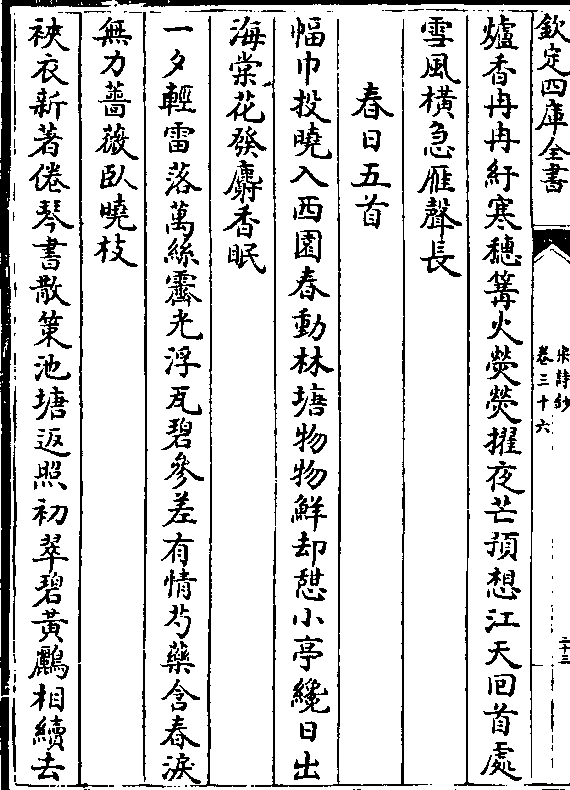 欽定四庫全書
宋詩鈔
卷三十六
二十三
爐香冉冉紆寒穗篝火熒熒擢夜芒預想江天回首處
雪風橫急雁聲長
春日五首
幅巾投曉入西園春動林塘物物鮮却憇小亭纔日出
海棠花發麝香眠
一夕輕雷落萬絲霽光浮瓦碧參差有情芍藥含春淚
無力薔薇臥曉枝
袂衣新著倦琴書散策池塘返照初翠碧黃鸝相續去